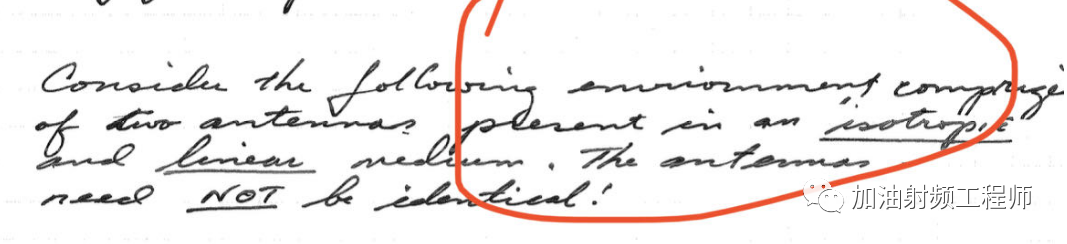 Consider the following environment comprize
of two antennas present in an isotropic
and linear medium. The antennas
need NOT be identical!
加油射频工程师